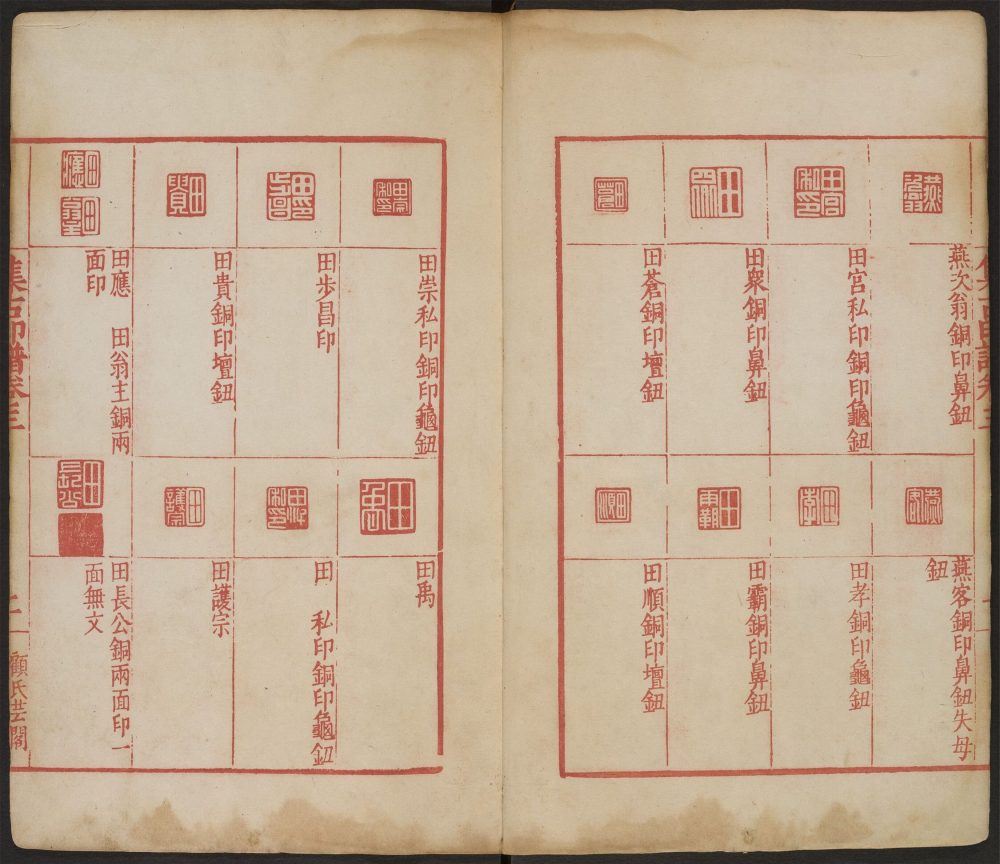 燕次翁銅印鼻鈕
田宮私印銅印龜鈕
田衆銅印鼻鈕
田蒼銅印壇鈕
燕客銅印鼻鈕失母
鈕
田孝銅印龜鈕
田霸銅印鼻鈕
田順銅印壇鈕
田崇私印銅印龜鈕
田步昌印
田貴銅印壇鈕
田應 田翁主銅兩
面印
田禹
田 私印銅印龜鈕
田護宗
田長公銅兩面印一
面無文
集古印譜卷三
二
顧氏芸閣